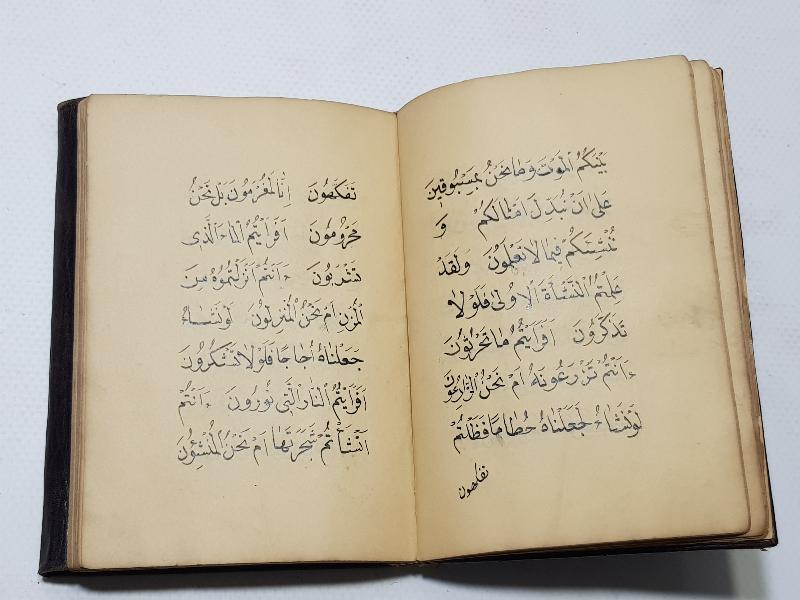 بَيْنَكُمُ الْمَوْتَ وَمَا نَحْنُ بِمَسْبُوقِينَ
عَلَىٰ اَنْ نُبَدِّلَ اَمْثَالَكُمْ وَ
نُنْشِئَكُمْ فِيمَا لَا تَعْلَمُونَ وَلَقَدْ
عَلِمْتُمُ النَّشْأَةَ الْاُولٰى فَلَوْلَا
تَذَكَّرُونَ اَفَرَاَيْتُمْ مَا تَحْرُثُونَ
ءَاَنْتُمْ تَزْرَعُونَهُ اَمْ نَحْنُ الزَّارِعُونَ
لَوْ نَشَاءُ لَجَعَلْنَاهُ حُطَامًا فَظَلْتُمْ
تفكهون
تَفَكَّهُونَ اِنَّا لَمُغْرَمُونَ بَلْ نَحْنُ
مَحْرُومُونَ اَفَرَاَيْتُمُ الْمَاءَ الَّذِى
تَشْرَبُونَ ءَاَنْتُمْ اَنْزَلْتُمُوهُ مِنَ
الْمُزْنِ اَمْ نَحْنُ الْمُنْزِلُونَ لَوْ نَشَاءُ
جَعَلْنَاهُ اُجَاجًا فَلَوْلَا تَشْكُرُونَ
اَفَرَاَيْتُمُ النَّارَ الَّتِى تُورُونَ ءَاَنْتُمْ
اَنْشَأْتُمْ شَجَرَتَهَا اَمْ نَحْنُ الْمُنْشِئُونَ